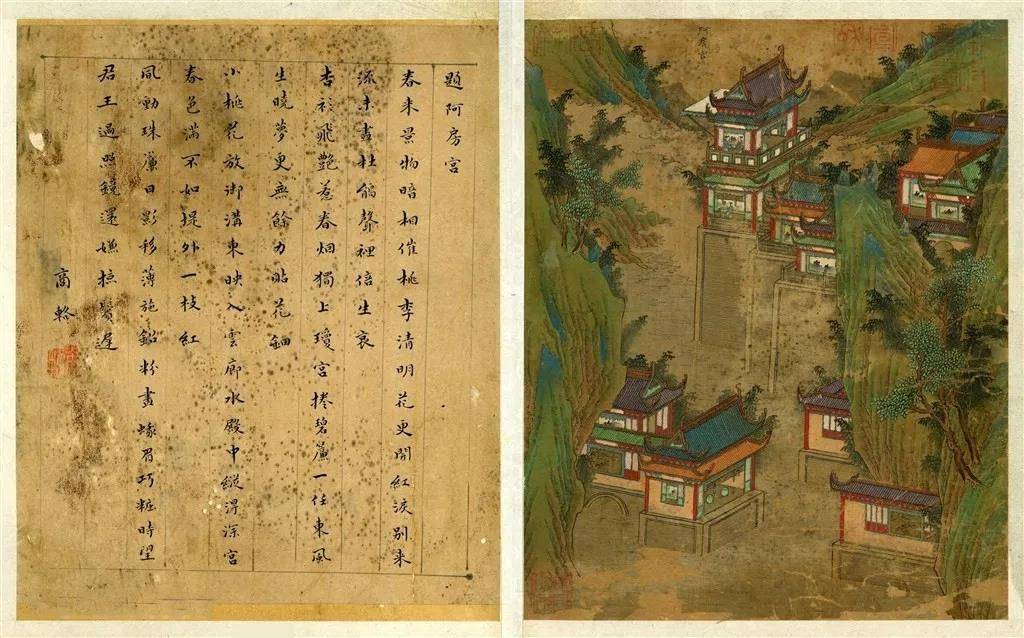 題阿房宮
春來景物暗相催桃李清明花更開紅淚別來
流未盡杜鵑聲裡倍生哀
杏衫飛艷惹春烟獨上瓊宮捲碧簾一任東風
生曉夢更無餘力貼花鈿
小桃花放御溝東映入雲廊水殿中縱得深宮
春色滿不如堤外一枝紅
風動珠簾日影移薄施鉛粉畫蛾眉巧粧時望
君王過照鏡還嫌掠鬢遲
商輅
阿房宮